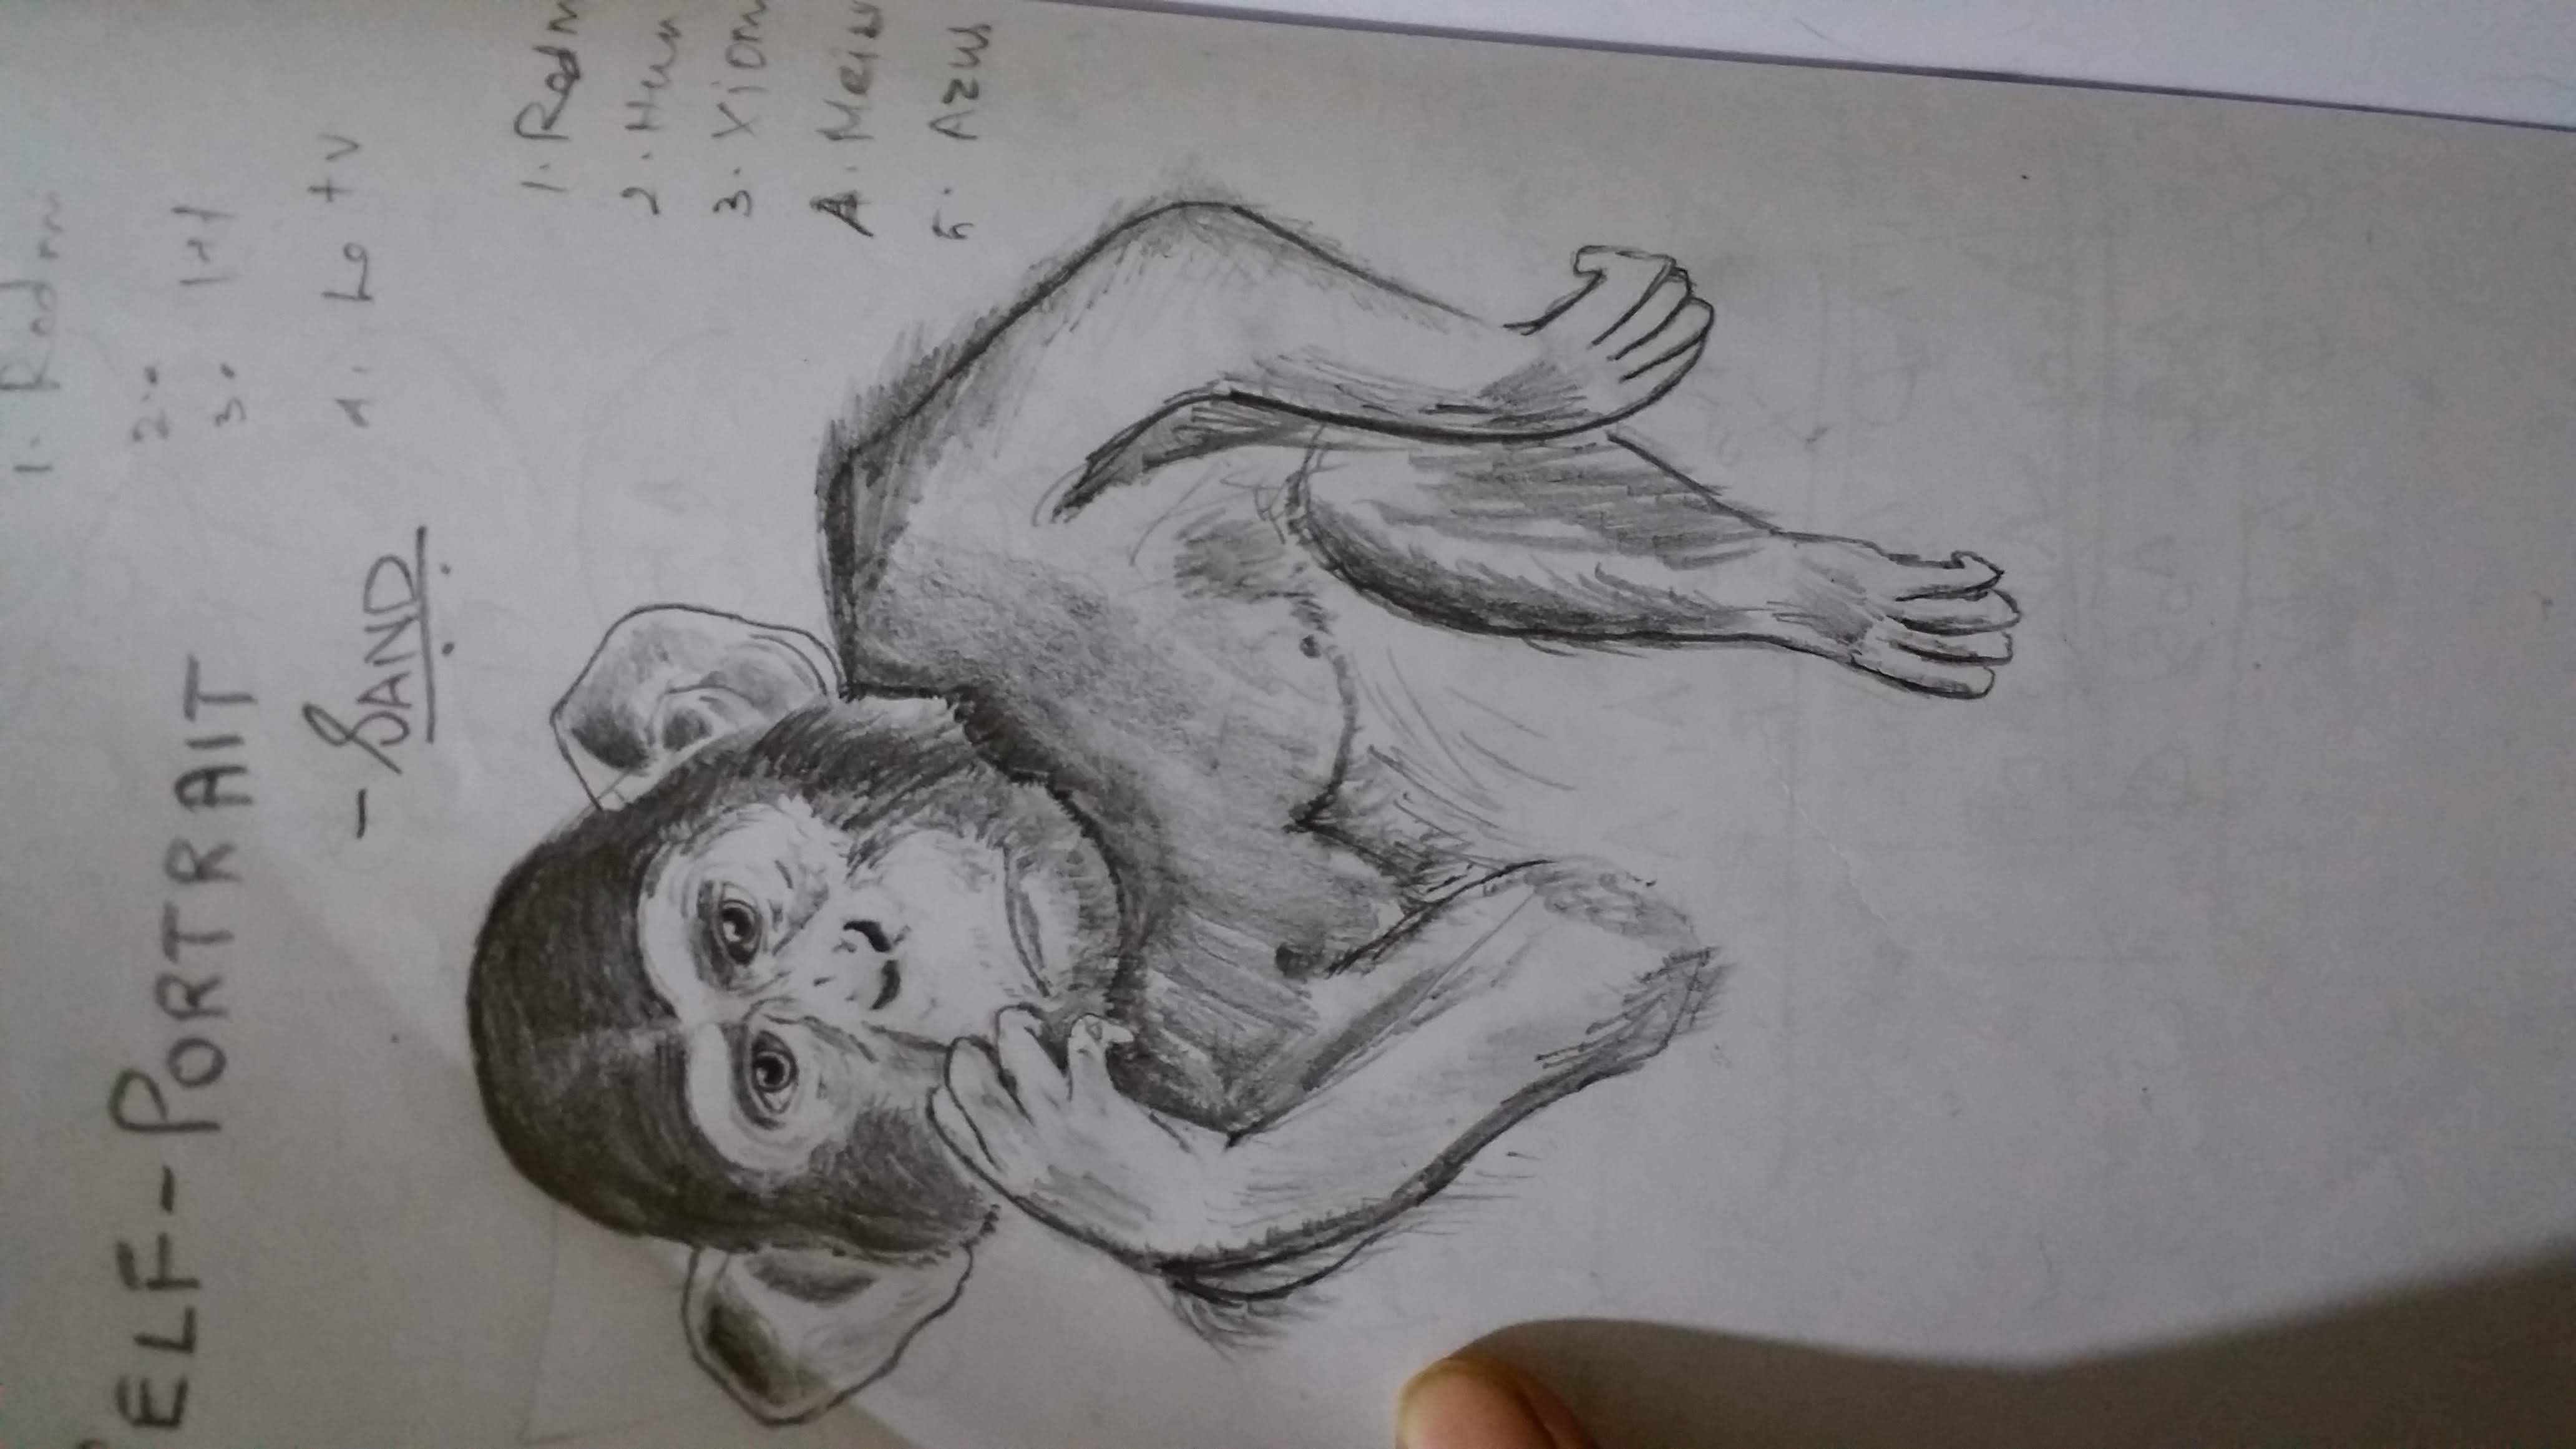 ELF-PORTRAIT
- SAND
1.
2.
3.
4. Le tv
1. Redm
2. Hun
3. Xiom
4. Meiz
5. Azus